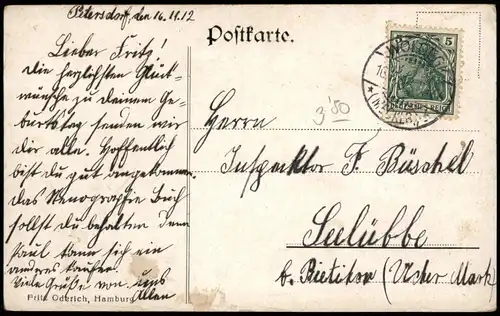 Petersdorf, den 16.11.12
Postkarte.
Lieber Fritz!
Die herzlichsten Glück-
wünsche zu deinem Ge-
burtstag senden wir
dir alle. Hoffentlich
bist du gut angekommen.
Das Stenographie Buch
sollst du behalten denn
Paul kann sich ein
anderes kaufen.
Viele Grüße von uns
Allen
Fritz Oderich, Hamburg
5 5
3 50
Herrn
Inspektor F. Büschel
Seelübbe
b. Bietikow (Ucker Mark)